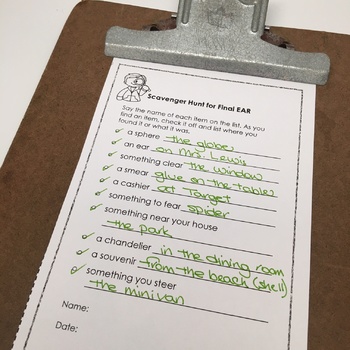 Scavenger Hunt for Final EAR
Say the name of each item on the list. As you
find an item, check it off and list where you
found it or what it was.
✓ a sphere the globe
✓ an ear on Mrs. Lewis
✓ something clear the window
✓ a smear glue on the table
✓ a cashier at Target
✓ something to fear spider
✓ something near your house
the park
✓ a chandelier in the dining room
✓ a souvenir from the beach (shell)
✓ something you steer
the minivan
Name:
Date: